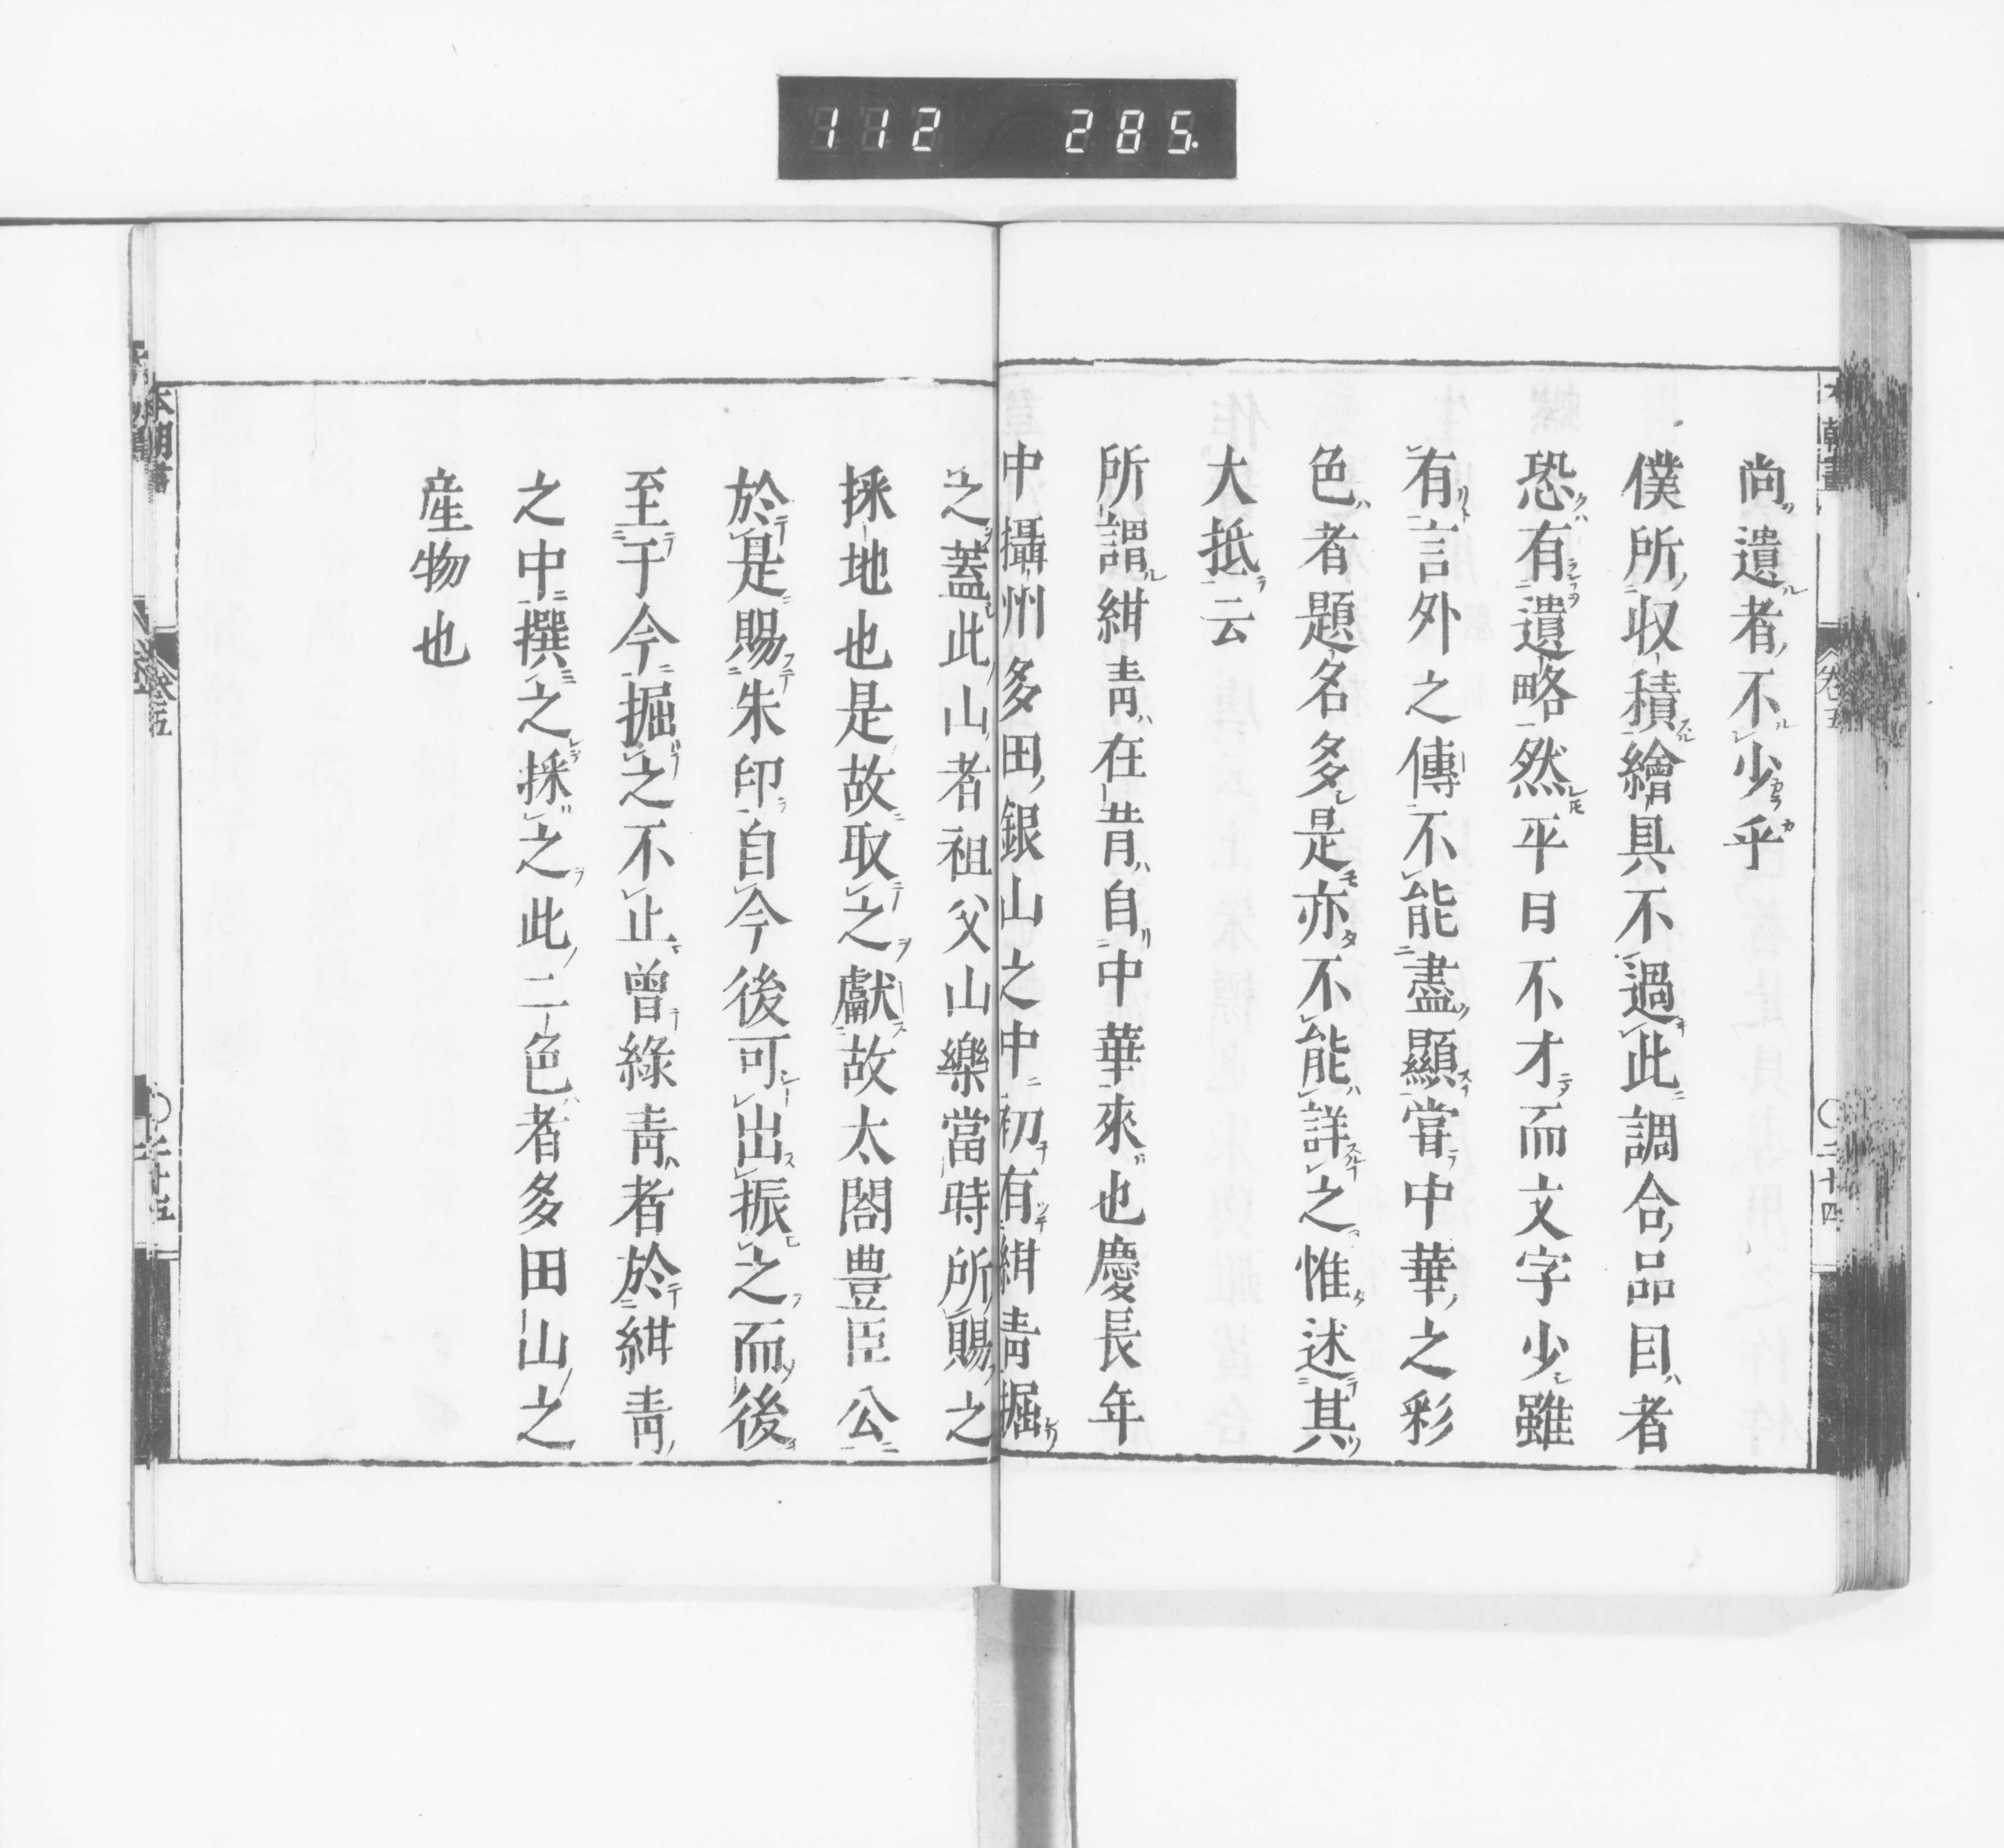 112 285.
本朝畫
卷五
〇二十四
尚遺者不少乎
僕所收積繪具不過此調合品目者
恐有遺略然平日不才而文字少雖
有言外之傳不能盡顯嘗中華之彩
色者題名多是亦不能詳之惟述其
大抵云
所謂紺靑在昔自中華來也慶長年
中攝州多田銀山之中初有紺靑掘
之蓋此山者祖父山樂當時所賜之
採地也是故取之獻故太閤豊臣公
於是賜朱印自今後可出振之而後
至于今掘之不止曾綠靑者於紺靑
之中撰之採之此二色者多田山之
産物也
本朝畫
卷五
〇二十五